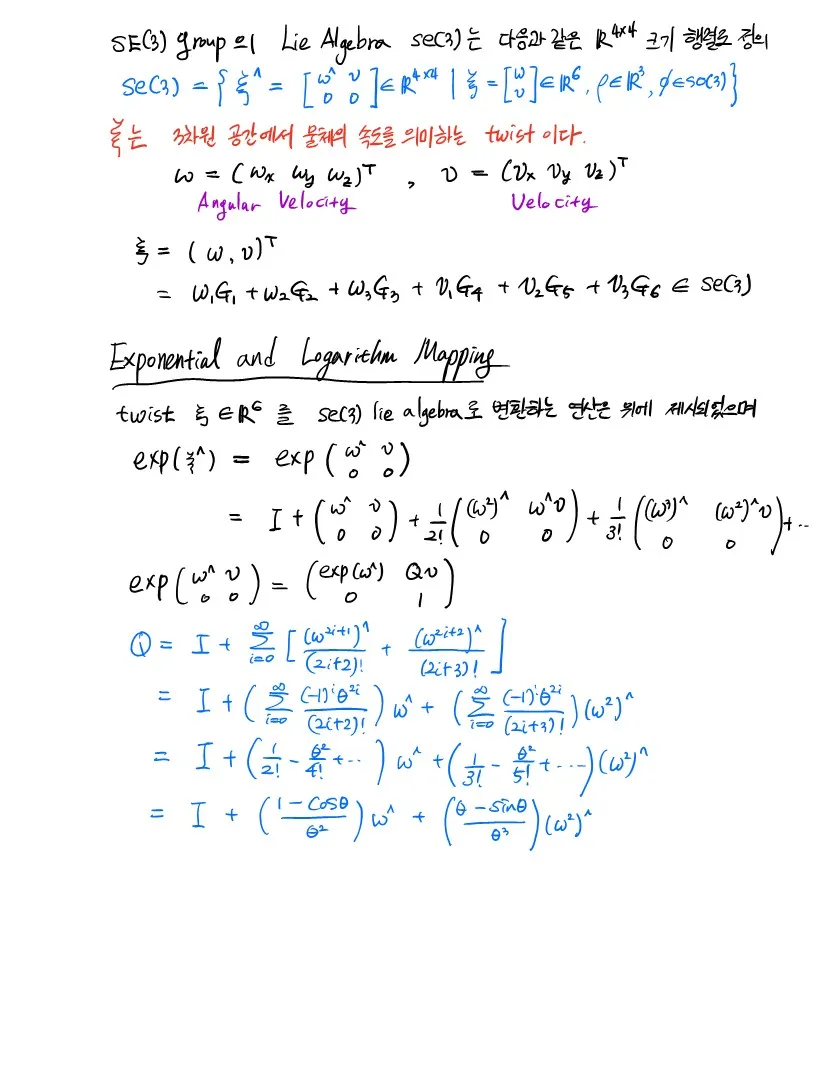 SE(3) group의 Lie Algebra se(3)는 다음과 같은 ℝ⁴ˣ⁴ 크기 행렬로 정의
se(3) = { ξ^ = [ω^ v; 0 0] ∈ ℝ⁴ˣ⁴ | ξ = [ω; v] ∈ ℝ⁶, ρ∈ℝ³, φ∈so(3)}
ξ는 3차원 공간에서 물체의 속도를 의미하는 twist 이다.
ω = (ωx ωy ωz)ᵀ , v = (vx vy vz)ᵀ
Angular Velocity Velocity
ξ = (ω, v)ᵀ
= ω₁G₁ + ω₂G₂ + ω₃G₃ + v₁G₄ + v₂G₅ + v₃G₆ ∈ se(3)
Exponential and Logarithm Mapping
twist ξ ∈ℝ⁶ 를 se(3) lie algebra로 변환하는 연산은 위에 제시되었으며
exp(ξ^) = exp (ω^ v; 0 0)
= I + (ω^ v; 0 0) + 1/2! ((ω²)^ ω^v; 0 0) + 1/3! ((ω³)^ (ω²)^v; 0 0) + ..
exp (ω^ v; 0 0) = (exp(ω^) Qv; 0 1)
Q = I + Σ_{i=0}^{∞} [ (ω²ⁱ⁺¹)^/(2i+2)! + (ω²ⁱ⁺²)^/(2i+3)! ]
= I + ( Σ_{i=0}^{∞} (-1)ⁱθ²ⁱ/(2i+2)! ) ω^ + ( Σ_{i=0}^{∞} (-1)ⁱθ²ⁱ/(2i+3)! ) (ω²)^
= I + ( 1/2! - θ²/4! + ... ) ω^ + ( 1/3! - θ²/5! + ... ) (ω²)^
= I + ( (1 - cosθ)/θ² ) ω^ + ( (θ - sinθ)/θ³ ) (ω²)^